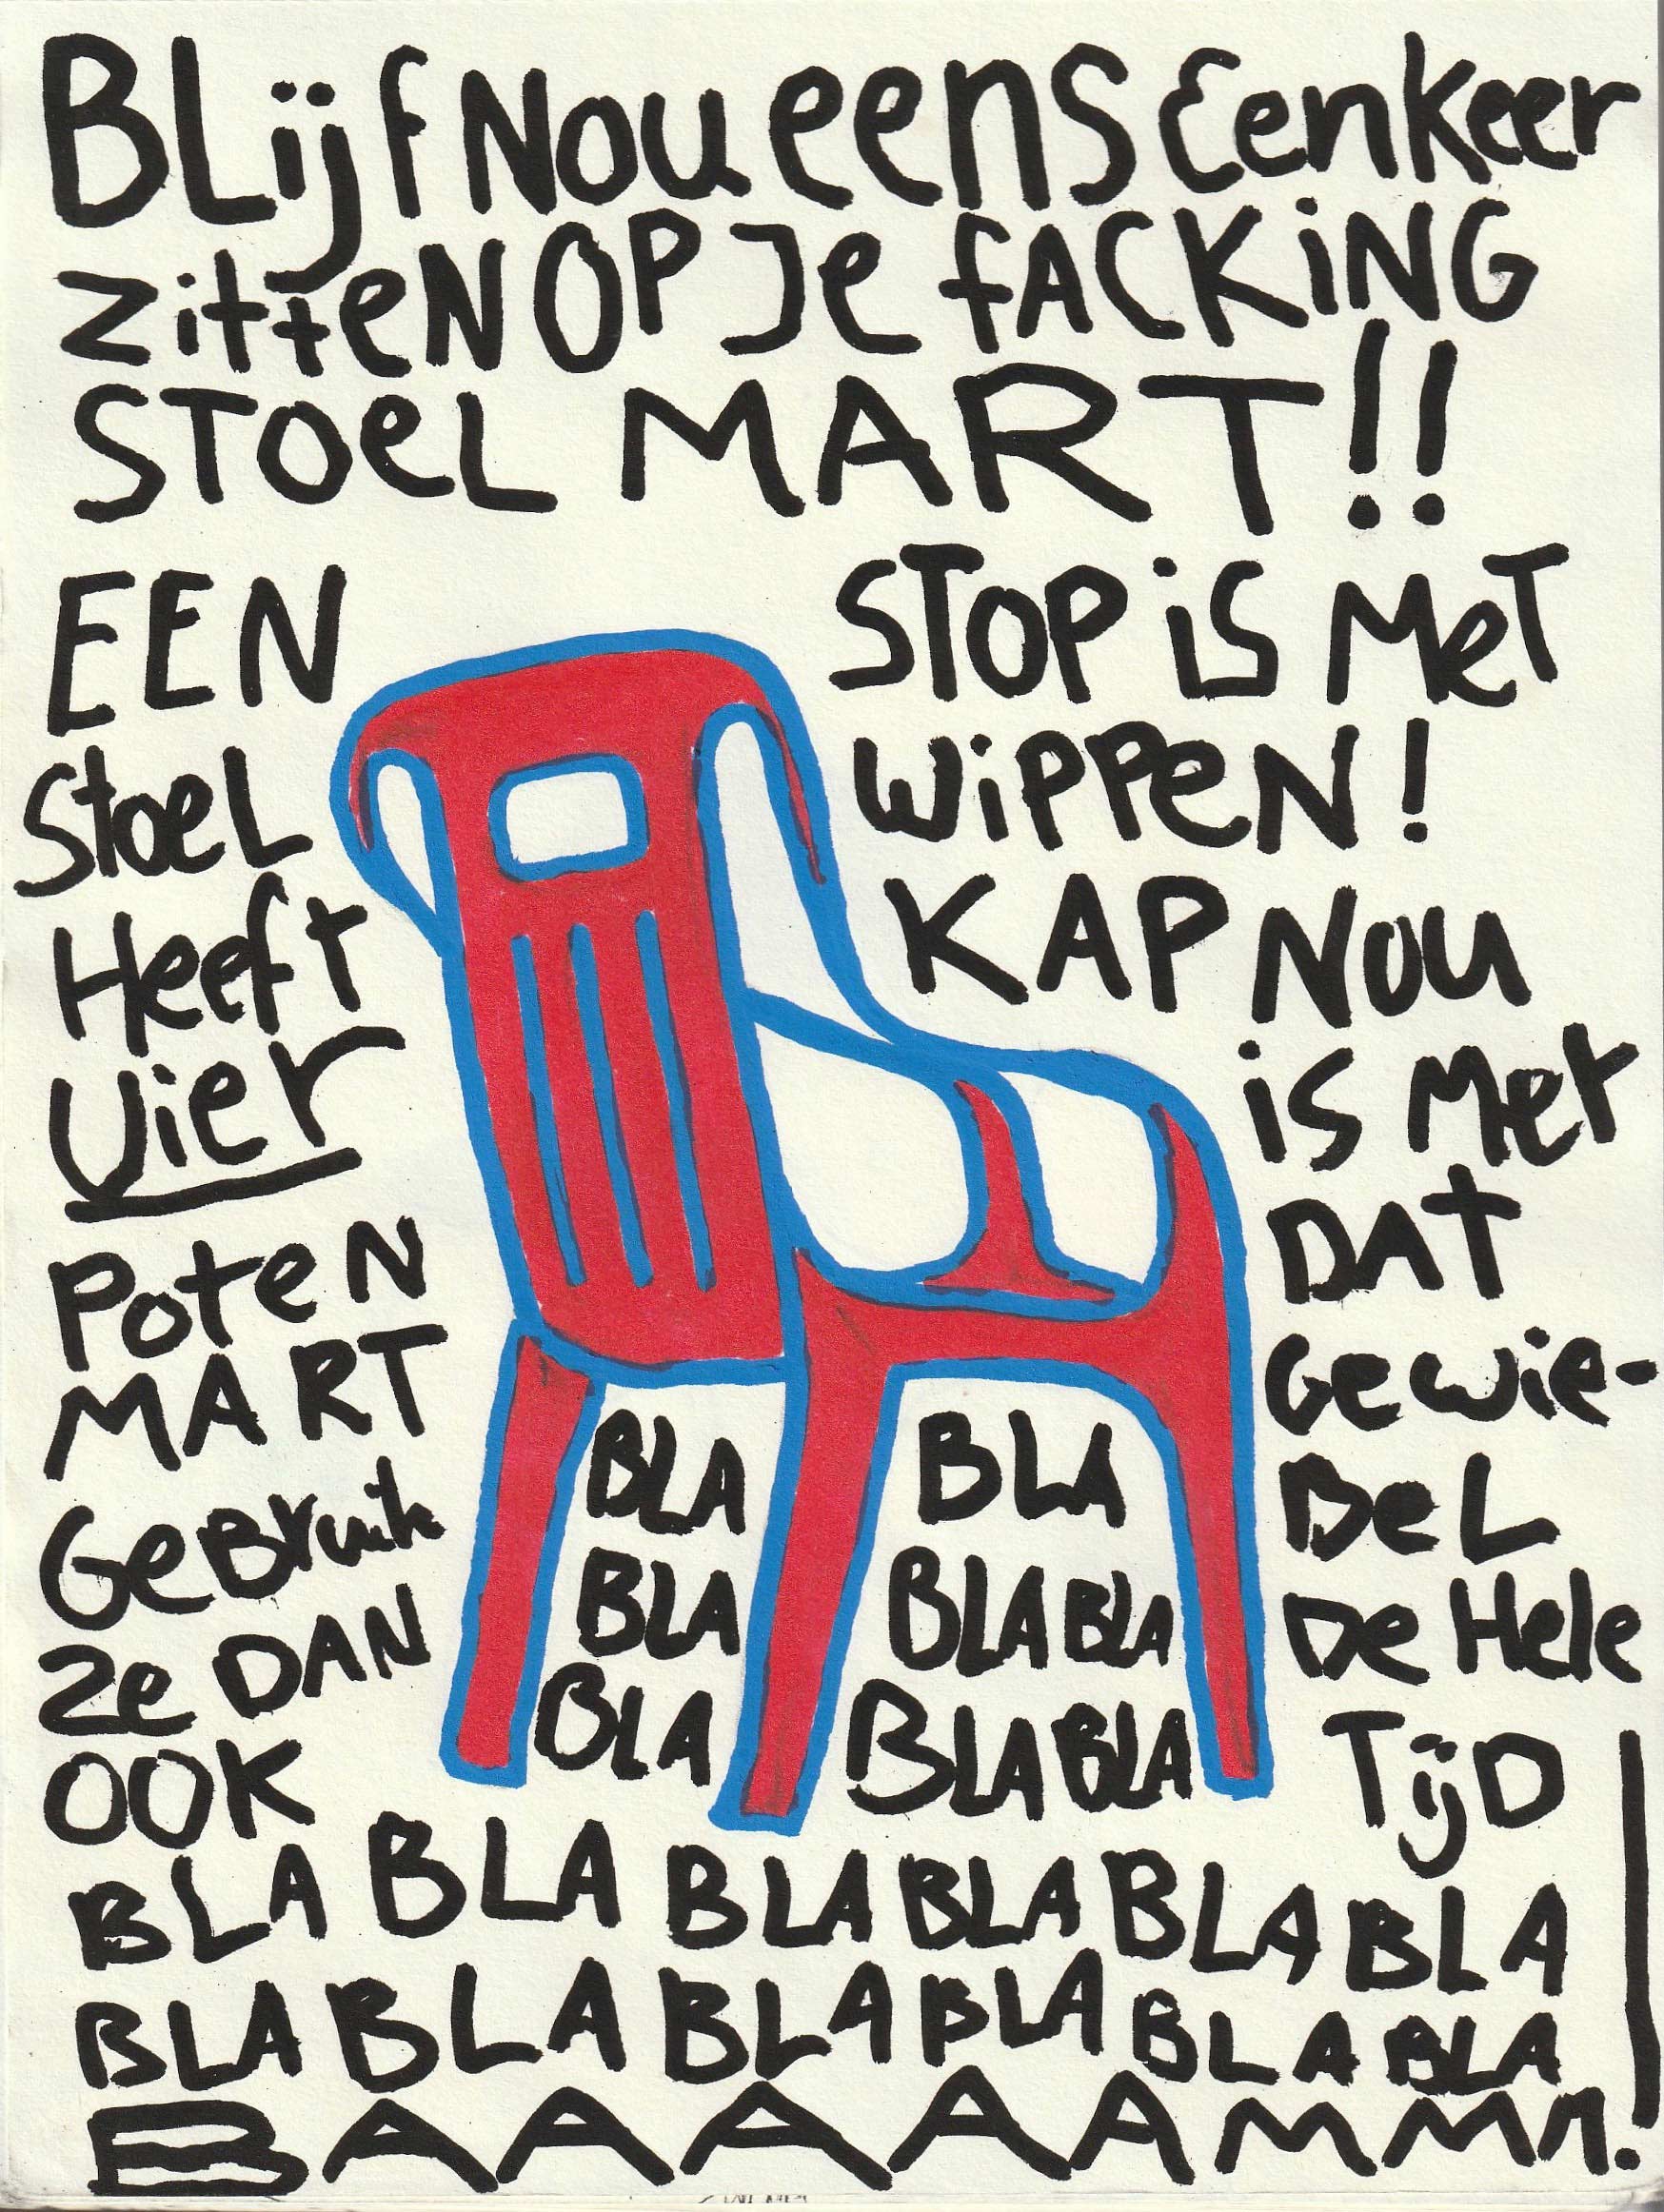 BLijf Nou eens Eenkeer
zitteN OP Je fACKiNG
SToeL MART!!
EEN
StoeL
Heeft
Vier
PoteN
MART
GeBruik
Ze DAN
OOK
STOP iS MeT
WiPPeN!
KAP Nou
is Met
DAt
Gewie-
BeL
De Hele
TijD
BLA BLA
BLA BLA BLA
BLA BLA BLA
BLA BLA BLA BLA BLA BLA
BLA BLA BLA BLA BLA BLA
BAAAAAMMM!